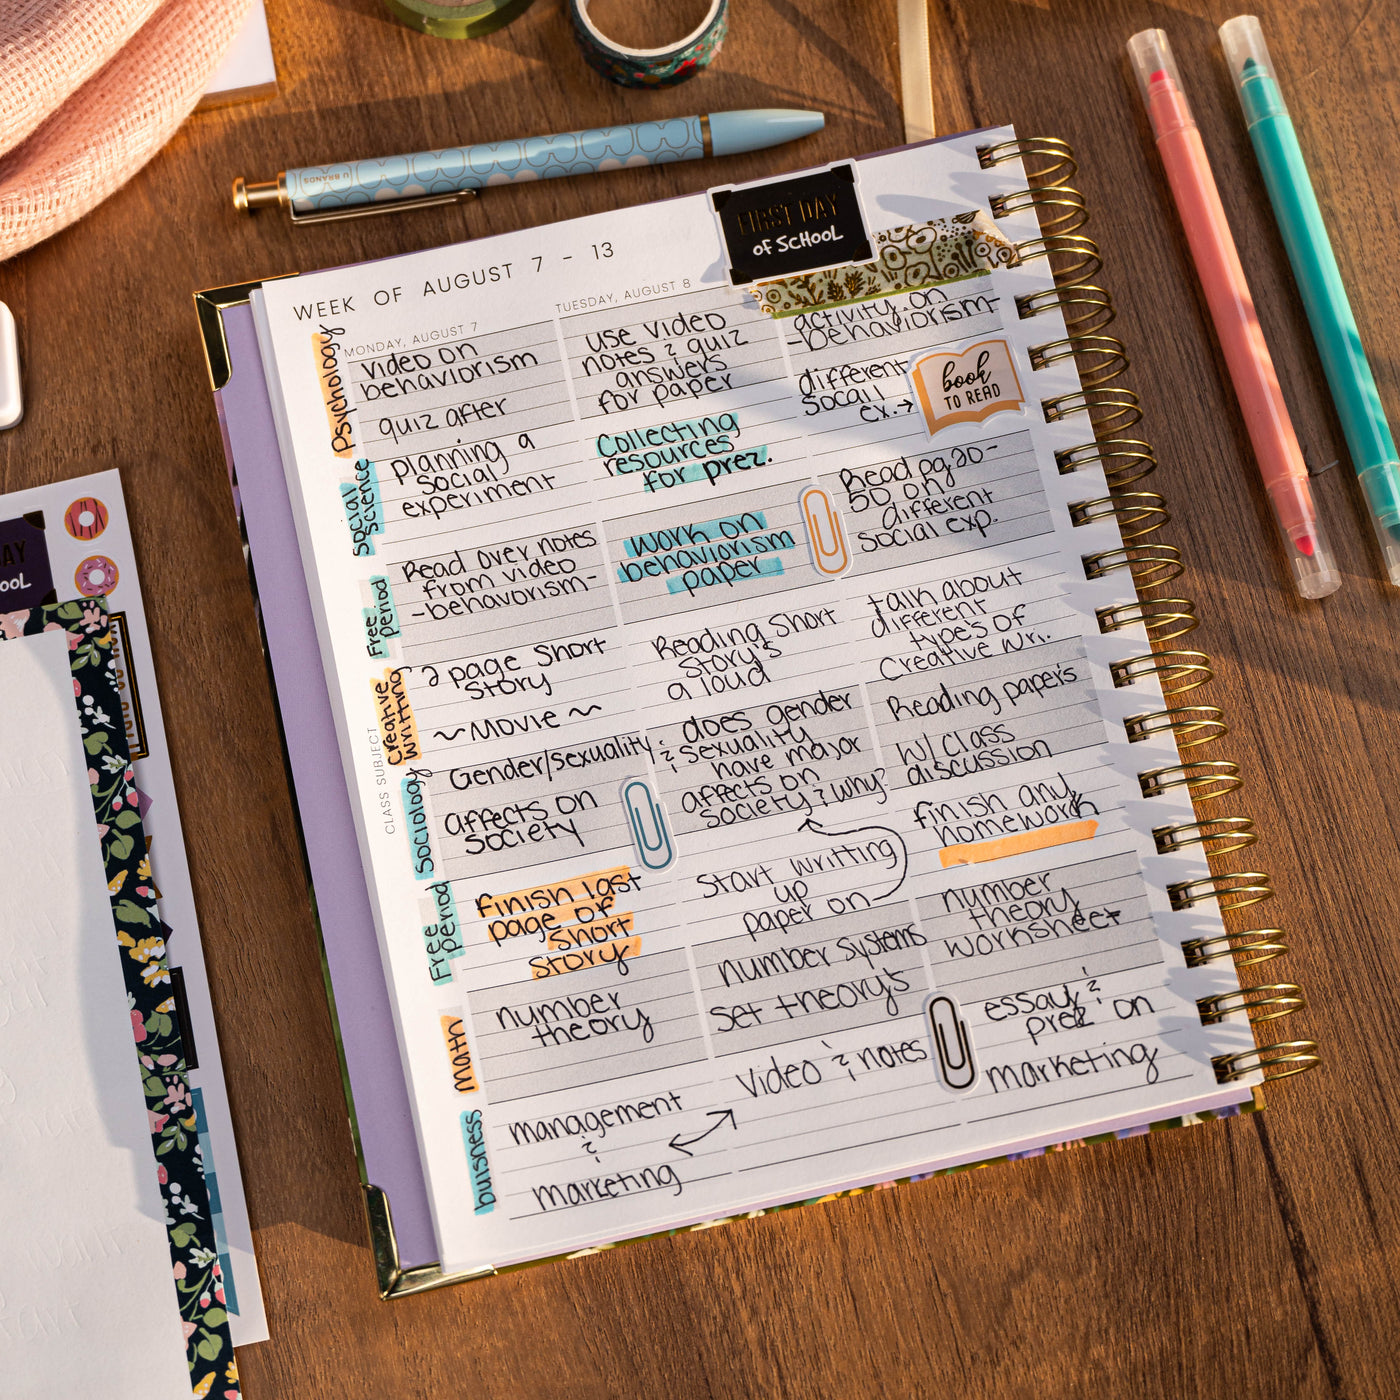 U BRANDS
FIRST DAY
OF SCHOOL
WEEK OF AUGUST 7 - 13
MONDAY, AUGUST 7
TUESDAY, AUGUST 8
CLASS SUBJECT
Psychology
video on
behaviorism
quiz after
use video
notes & quiz
answers
for paper
activity on
-behaviorism-
Social
Science
planning a
social
experiment
Collecting
resources
for prez.
different
socail
ex.→
book
TO READ
Free
Period
Read over notes
from video
-behavorism-
work on
behaviorism
paper
Read pg 20-
50 on
different
social exp.
Creative
writting
2 page short
story
~Movie~
Reading short
story's
a loud
talk about
different
types of
Creative wri.
Sociology
Gender/sexuality
affects on
society
does gender
& sexuality
have major
affects on
society & why?
Reading paper's
w/ class
discussion
Free
period
finish last
page of
short
story
Start writting
up
paper on
finish any
homework
Math
number
theory
number systems
set theory's
number
theory
worksheet
buisness
management
&
marketing
video & notes
essay &
prez on
marketing
AY
OOL